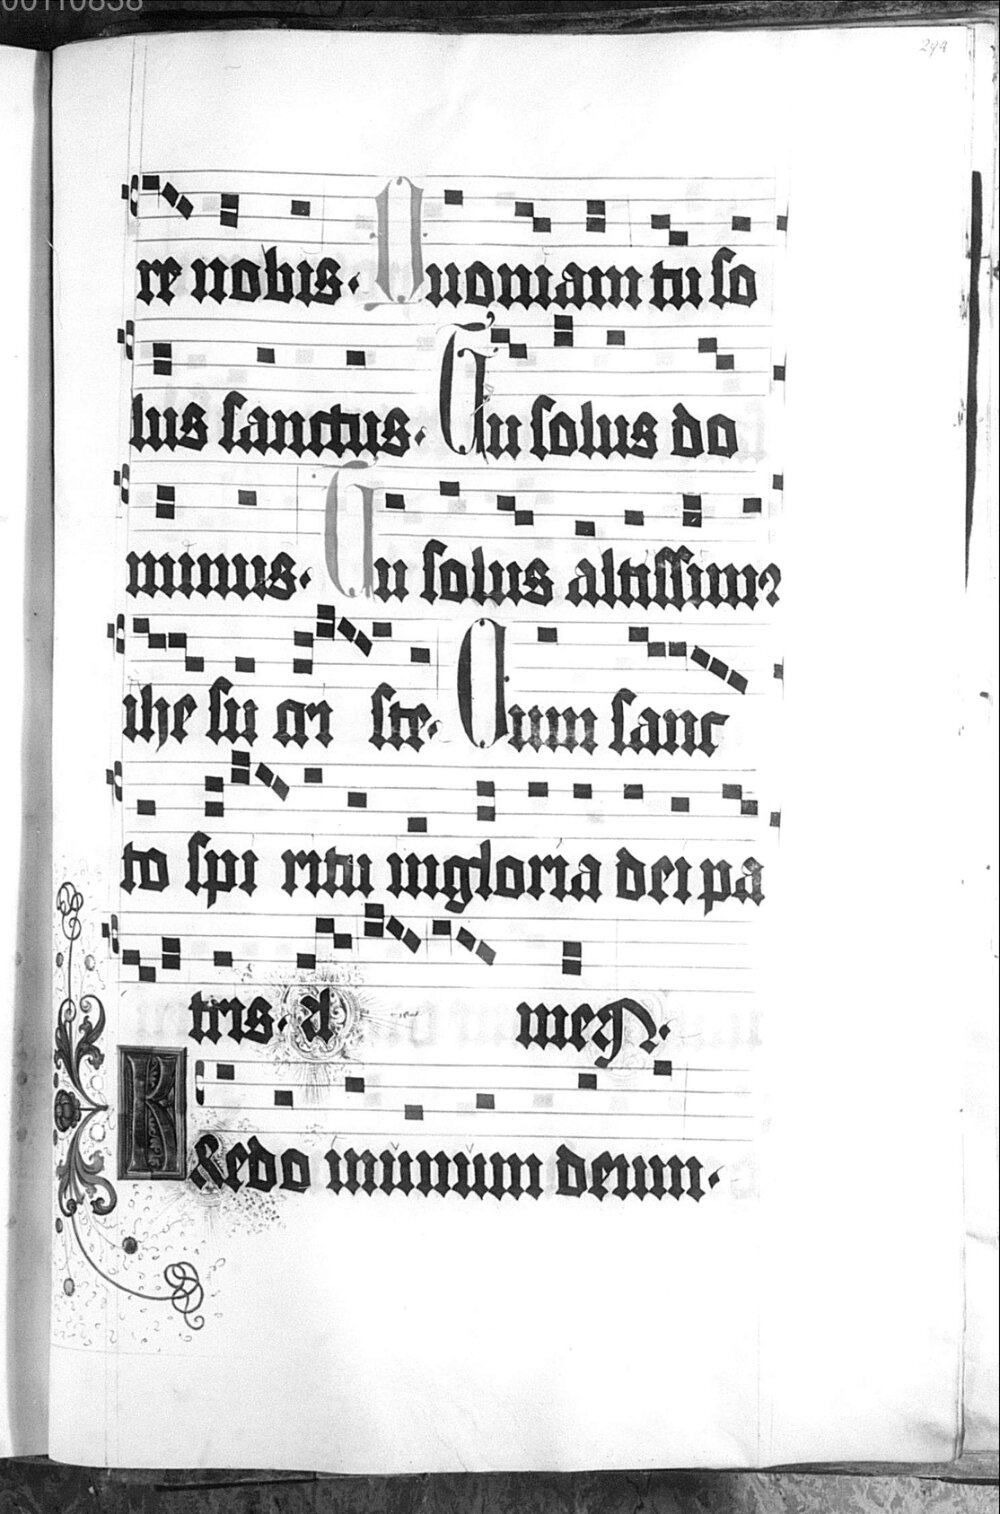 00110838
299
re nobis. Quoniam tu so
lus sanctus. Tu solus do
minus. Tu solus altissimꝰ
ihe su cri ste. Cum sanc
to spi ritu in gloria dei pa
tris. A men.
KRedo in unum deum.